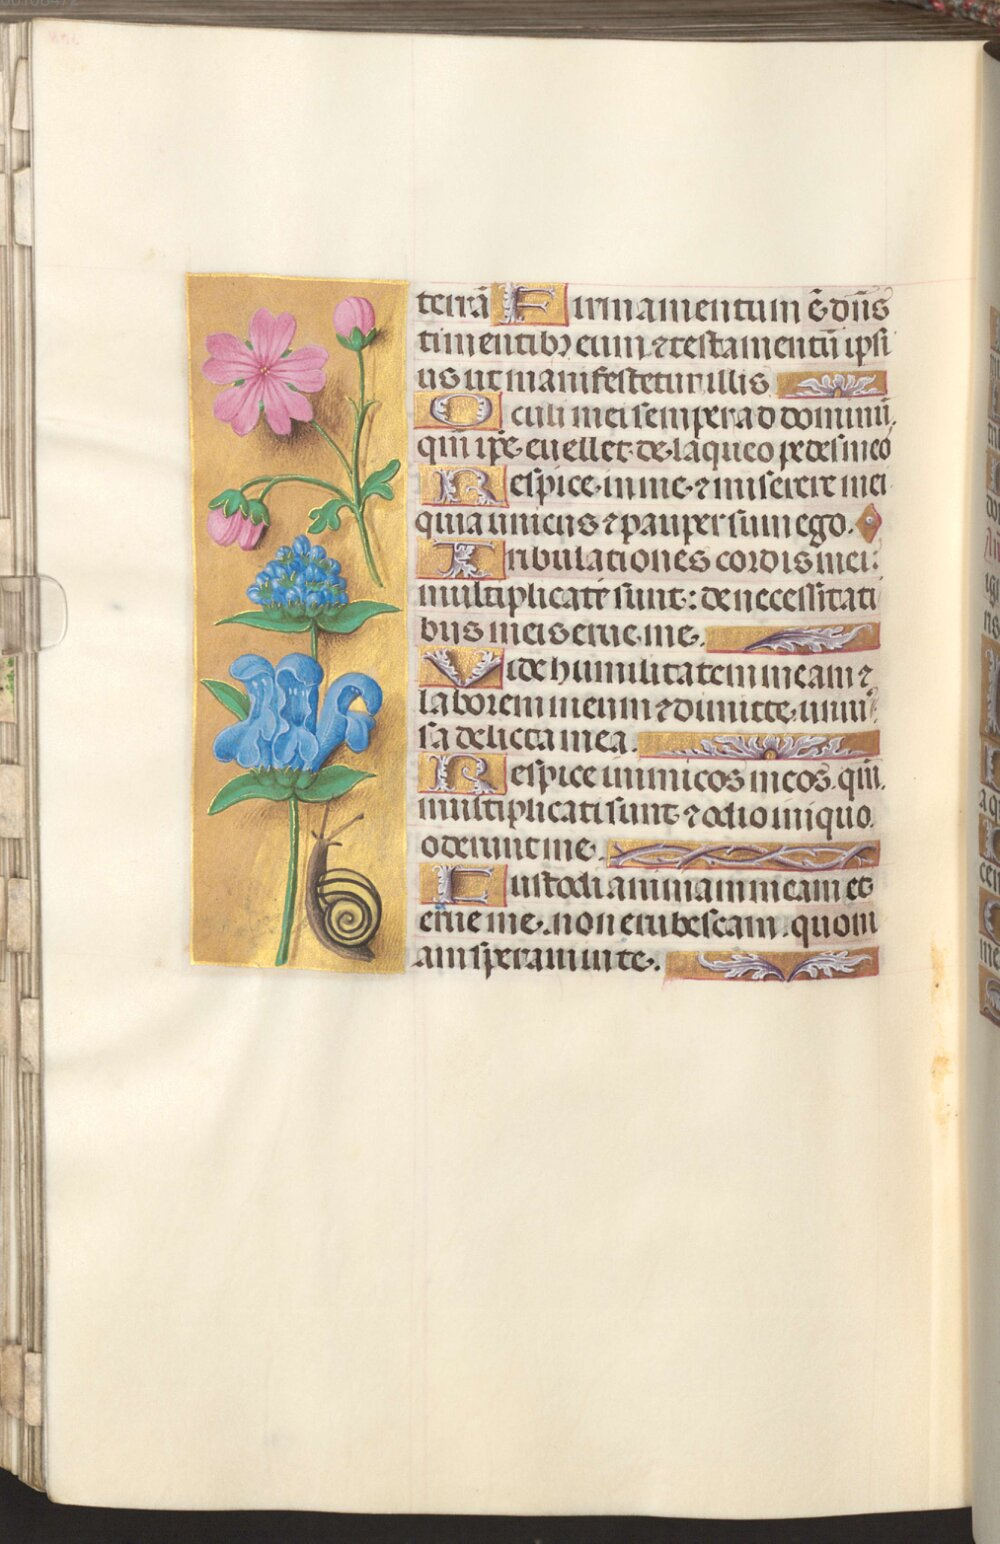 terrā Firmamentum ē dn̄s
timentibꝫ eum ⁊ testamentū ipsi
us ut manifestetur illis
Oculi mei semper ad dominū,
qm̄ ip̄e euellet de laqueo pedes meo
Respice in me ⁊ miserere mei
quia unicus ⁊ pauper sum ego.
Tribulationes cordis mei:
multiplicate sunt: de necessitati
bus meis erue me.
Vide humilitatem meam ⁊
laborem meum ⁊ dimitte uniuꝰ
sa delicta mea.
Respice inimicos meos. qm̄.
multiplicati sunt ⁊ odio iniquo.
oderunt me.
Custodi animam meam et
erue me. non erubescam. quoni
am speraui in te.